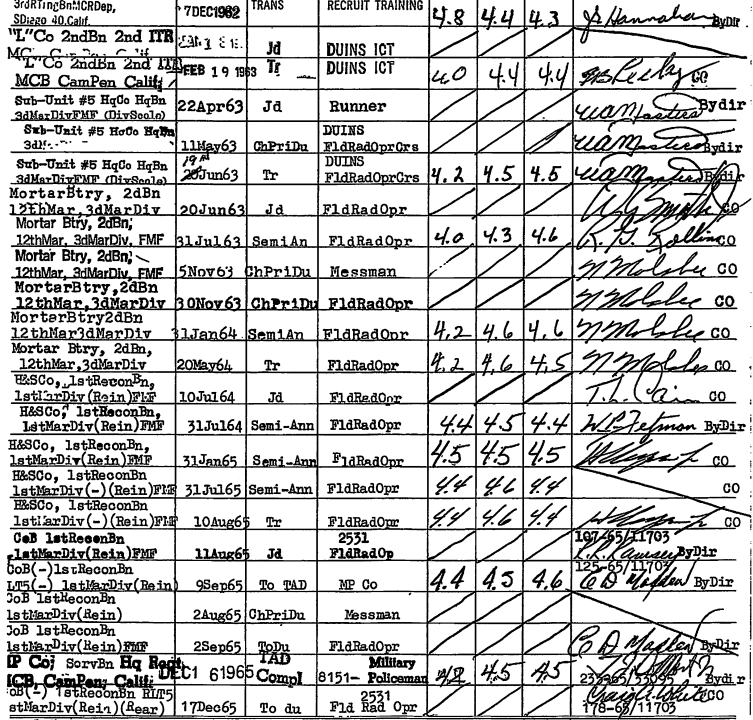 3rdRTngBnMCRDep, 7DEC1962 TRANS RECRUIT TRAINING 4.8 4.4 4.3
SDiego 40,Calif. ByDir
"L"Co 2ndBn 2nd ITR Jd DUINS ICT
"L"Co 2ndBn 2nd ITR FEB 19 1963 Tr DUINS ICT 4.0 4.4 4.4
MCB CamPen Calif CO
Sub-Unit #5 HqCo HqBn 22Apr63 Jd Runner
3dMarDivFMF (DivScols) Bydir
Sub-Unit #5 HqCo HqBn 11May63 ChPriDu DUINS
FldRadOprCrs Bydir
Sub-Unit #5 HqCo HqBn 19 Jun63 Tr DUINS 4.2 4.5 4.5
3dMarDivFMF (DivScols) FldRadOprCrs Bydir
MortarBtry, 2dBn
12thMar,3dMarDiv 20Jun63 Jd FldRadOpr CO
Mortar Btry, 2dBn,
12thMar, 3dMarDiv, FMF 31Jul63 SemiAn FldRadOpr 4.0 4.3 4.6 CO
Mortar Btry, 2dBn,
12thMar, 3dMarDiv, FMF 5Nov63 ChPriDu Messman CO
MortarBtry,2dBn
12thMar,3dMarDiv 30Nov63 ChPriDu FldRadOpr CO
MortarBtry2dBn
12thMar3dMarDiv 31Jan64 SemiAn FldRadOpr 4.2 4.6 4.6 CO
Mortar Btry, 2dBn,
12thMar,3dMarDiv 20May64 Tr FldRadOpr 4.2 4.6 4.5 CO
H&SCo, 1stReconBn,
1stMarDiv(Rein)FMF 10Jul64 Jd FldRadOpr T.L. Cain CO
H&SCo, 1stReconBn,
1stMarDiv(Rein)FMF 31Jul64 Semi-Ann FldRadOpr 4.4 4.5 4.4 ByDir
H&SCo, 1stReconBn,
1stMarDiv(Rein)FMF 31Jan65 Semi-Ann FldRadOpr 4.5 4.5 4.5 CO
H&SCo, 1stReconBn
1stMarDiv(-)(Rein)FMF 31Jul65 Semi-Ann FldRadOpr 4.4 4.6 4.4 CO
H&SCo, 1stReconBn
1stMarDiv(-)(Rein)FMF 10Aug65 Tr FldRadOpr 4.4 4.6 4.4 CO
CoB 1stReconBn 2531 107-65/11703
1stMarDiv(Rein)FMF 11Aug65 Jd FldRadOp ByDir
CoB(-)1stReconBn 125-65/11703
RLT5(-) 1stMarDiv(Rein) 9Sep65 To TAD MP Co 4.4 4.5 4.6 ByDir
CoB 1stReconBn
1stMarDiv(Rein) 2Aug65 ChPriDu Messman
CoB 1stReconBn
1stMarDiv(Rein)FMF 2Sep65 ToDu FldRadOpr ByDir
MP Co, ServBn Hq Regt TAD Military
MCB, CamPen, Calif. DEC1 61965 Compl 8151- Policeman 4.5 4.5 Bydir
CoB(-) 1stReconBn RLT5 2531 Craig A. White CO
1stMarDiv(Rein)(Rear) 17Dec65 To du Fld Rad Opr 178-65/11703